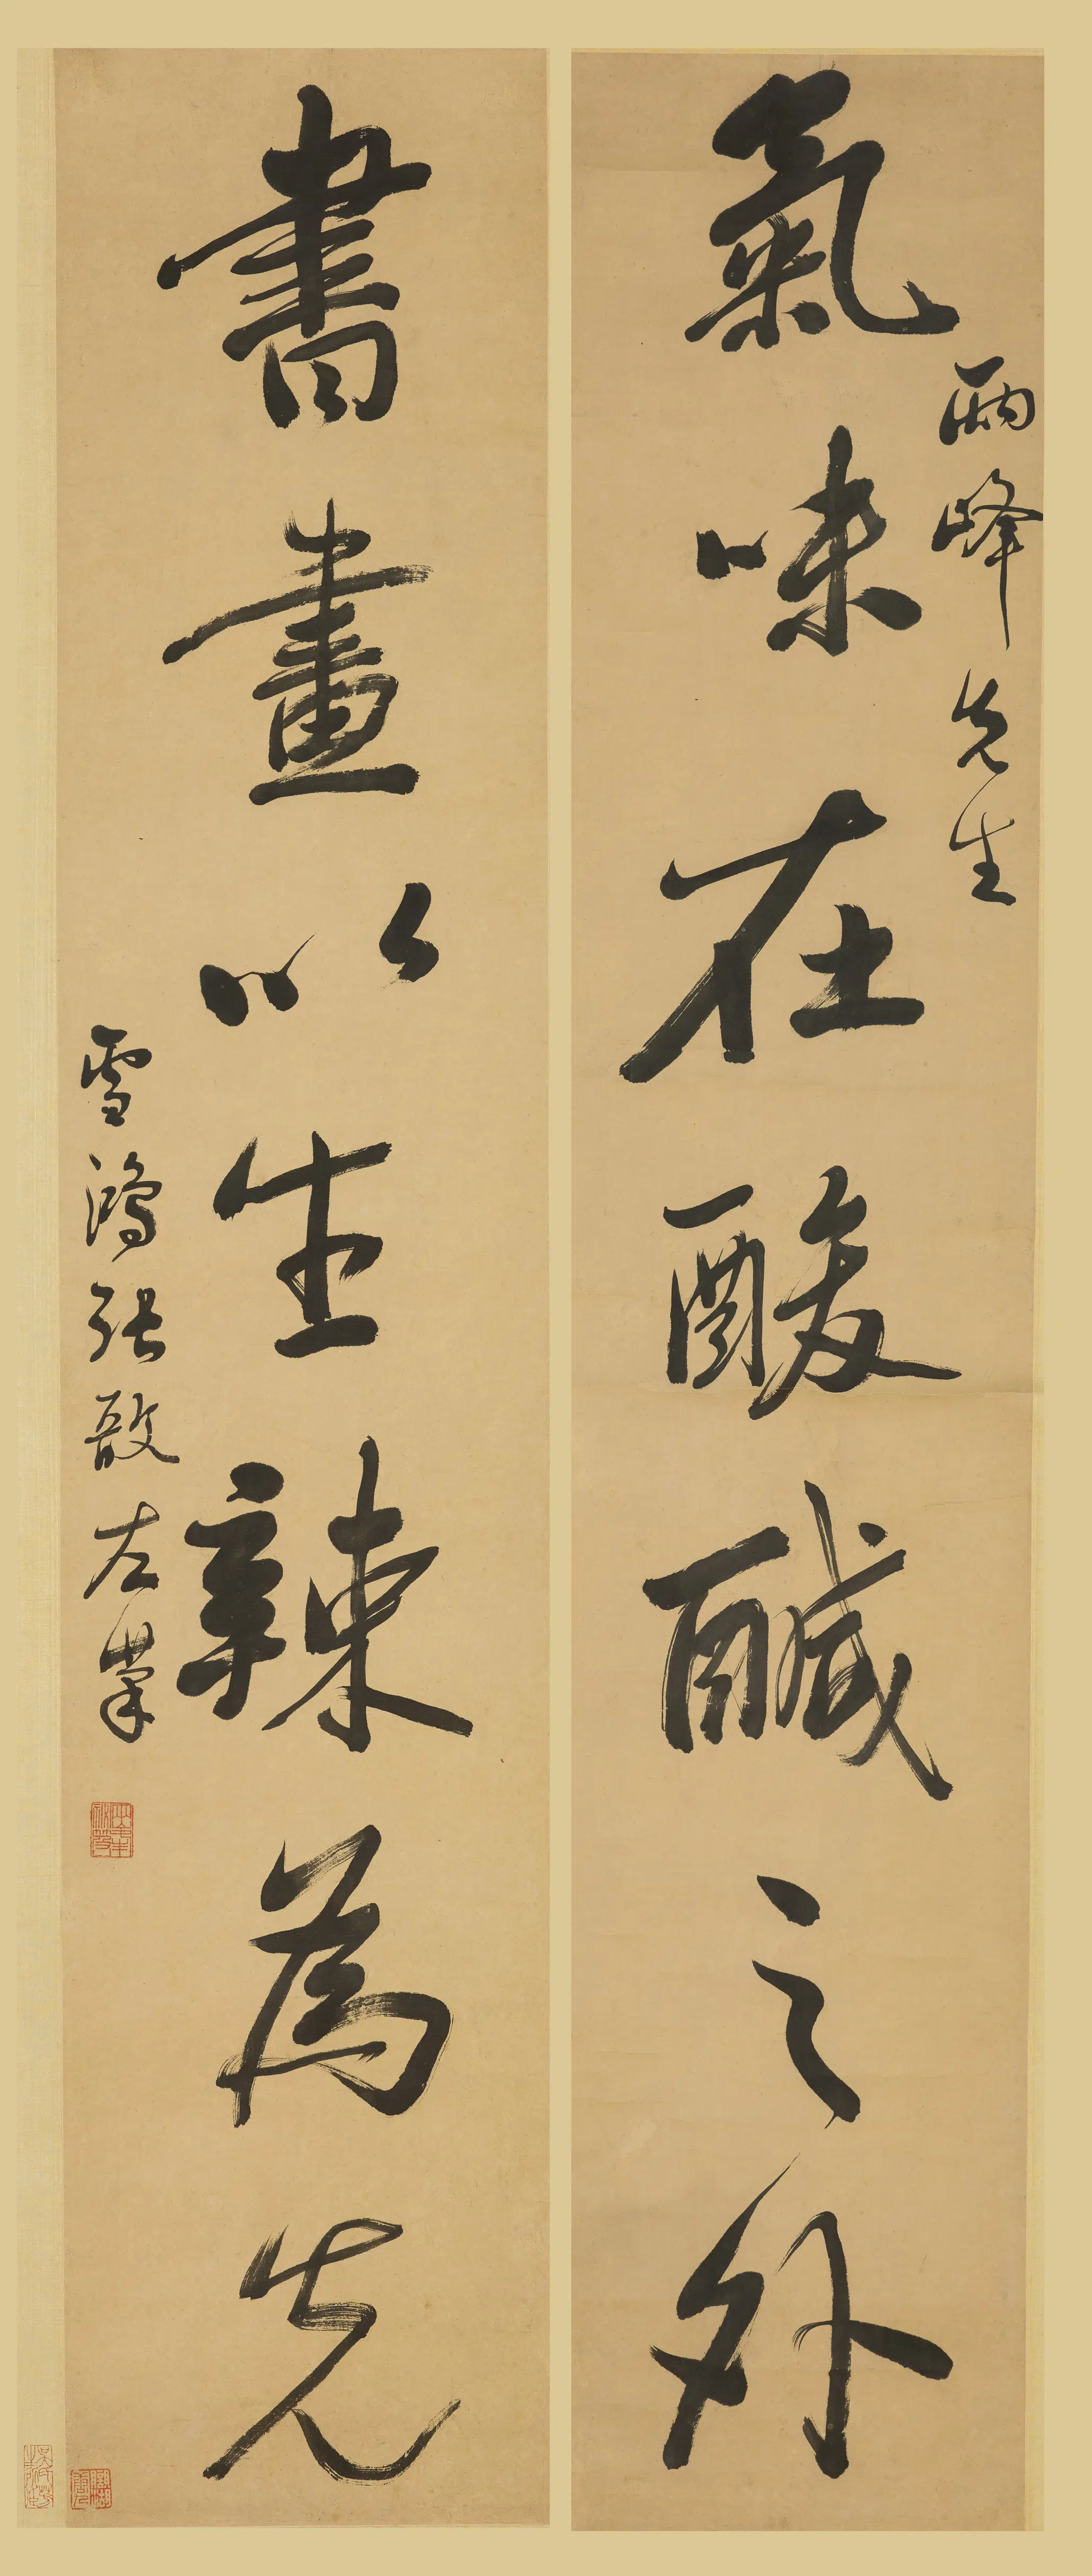 氣味在酸鹹之外
兩峰先生
書畫以生辣為先
雪鴻張敔左筆